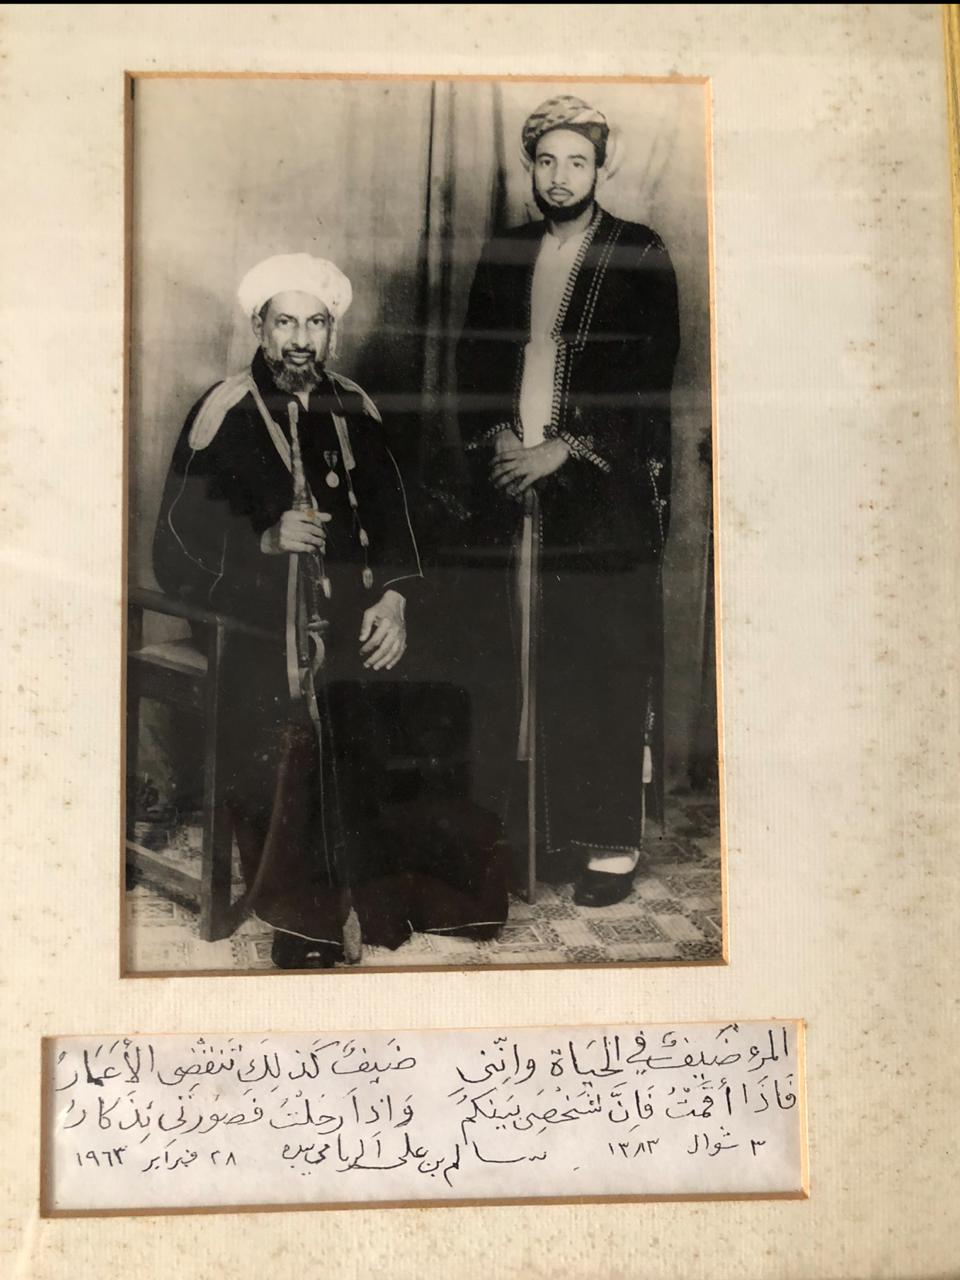 المرءُ ضَيفٌ في الحَيَاة وانّني ضَيفٌ كَذلِكَ تَنقَضِى الأعمَارُ
فَاذَا أقمْتُ فَانَّ شَخْصِىَ بَينَكمُ وَاذا رَحَلْتُ فَصُورَتى تِذكَارُ
٣ شوال ١٣٨٣ سالم بن على الريامي بيده ٢٨ فبراير ١٩٦٣